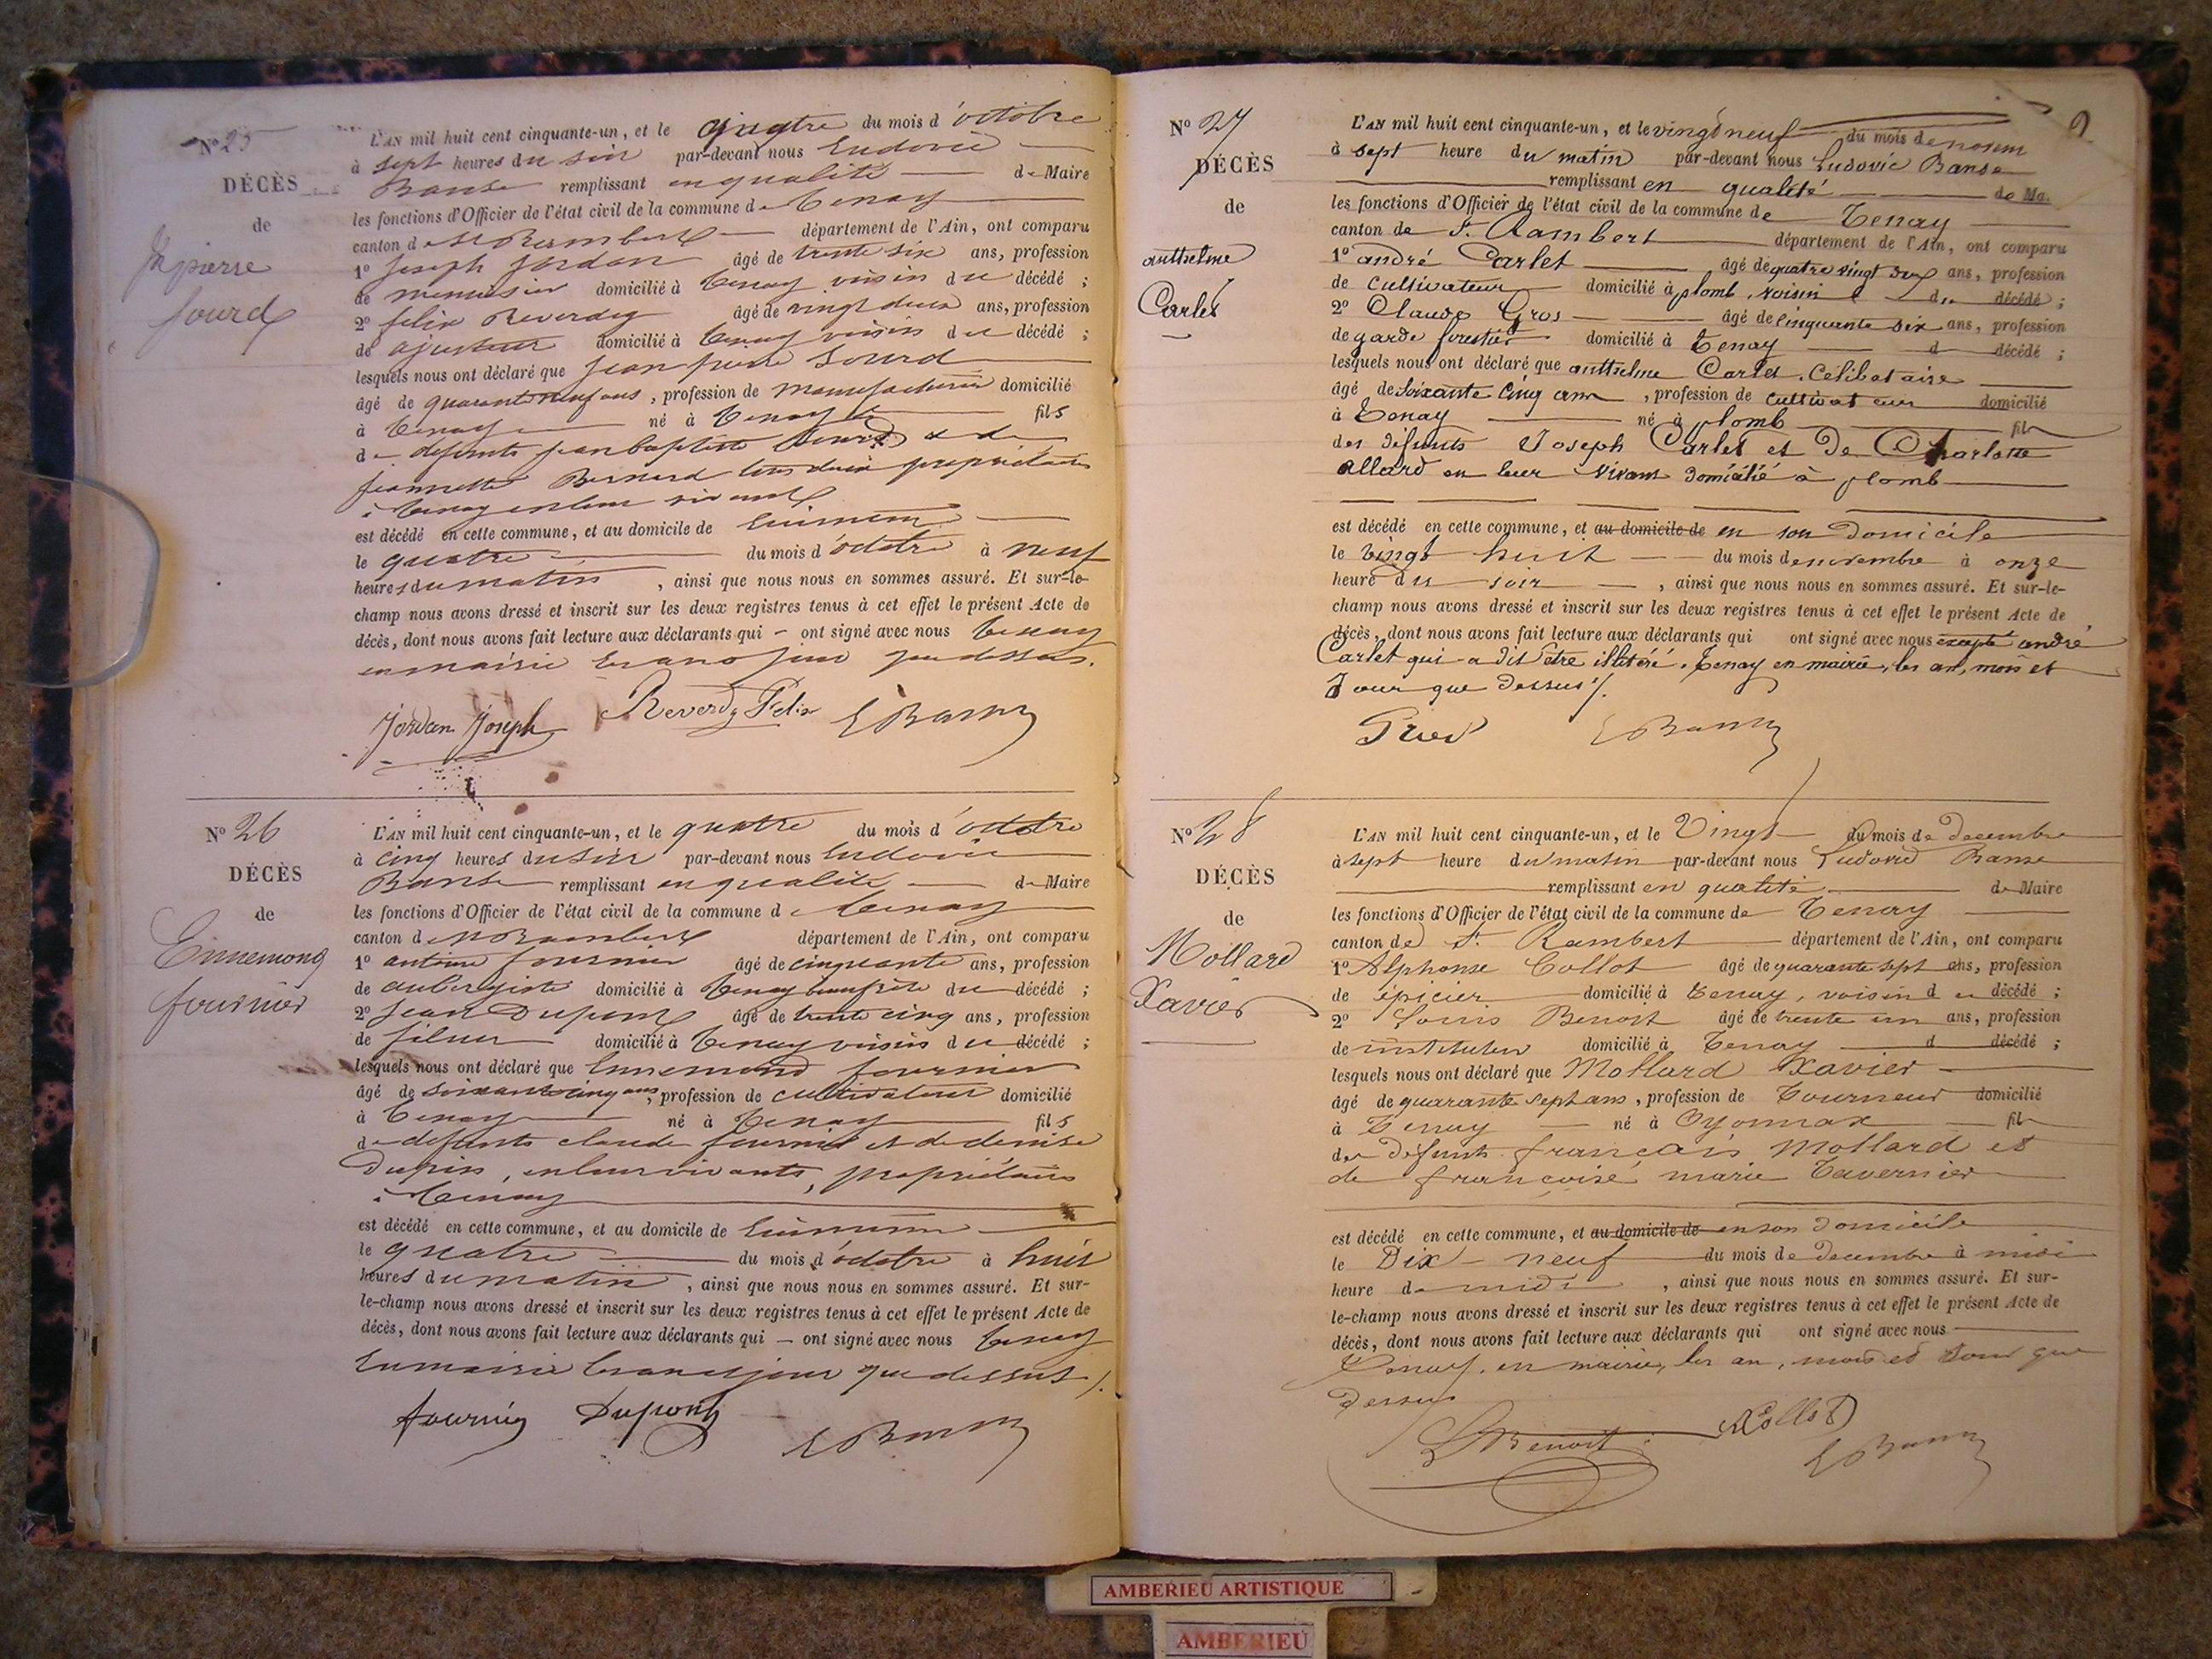 N° 25
DÉCÈS
de
Jn pierre
Sourd
L'AN mil huit cent cinquante-un, et le quatre du mois d'octobre
à sept heures du soir par-devant nous Ludovic
Banse remplissant en qualité de Maire
les fonctions d'Officier de l'état civil de la commune de Tenay
canton de St Rambert département de l'Ain, ont comparu
1° Joseph Jordan âgé de trente six ans, profession
de menuisier domicilié à Tenay voisin du décédé ;
2° felix Reverdy âgé de vingt deux ans, profession
de ajusteur domicilié à Tenay voisin du décédé ;
lesquels nous ont déclaré que Jean pierre Sourd
âgé de quarante neuf ans, profession de manufacturier domicilié
à Tenay né à Tenay fils
de defunts jean baptiste Sourd & de
jeannette Bernard tous deux propriétaires
à Tenay en leur vivant
est décédé en cette commune, et au domicile de lui même
le quatre du mois d'octobre à neuf
heures du matin, ainsi que nous nous en sommes assuré. Et sur-le-
champ nous avons dressé et inscrit sur les deux registres tenus à cet effet le présent Acte de
décès, dont nous avons fait lecture aux déclarants qui – ont signé avec nous Tenay
en mairie les an & jour que dessus.
Jordan Joseph Reverdy Felix L Banse
N° 26
DÉCÈS
de
Ennemond
fournier
L'AN mil huit cent cinquante-un, et le quatre du mois d'octobre
à cinq heures du soir par-devant nous Ludovic
Banse remplissant en qualité de Maire
les fonctions d'Officier de l'état civil de la commune de Tenay
canton de St Rambert département de l'Ain, ont comparu
1° antoine fournier âgé de cinquante ans, profession
de aubergiste domicilié à Tenay beaufrère du décédé ;
2° Jean Dupont âgé de trente cinq ans, profession
de fileur domicilié à Tenay voisin du décédé ;
lesquels nous ont déclaré que Ennemond fournier
âgé de soixante cinq ans, profession de cultivateur domicilié
à Tenay né à Tenay fils
de defunts claude fournier et de denise
Dupin, en leur vivants, propriétaires
à Tenay
est décédé en cette commune, et au domicile de lui même
le quatre du mois d'octobre à huit
heures du matin, ainsi que nous nous en sommes assuré. Et sur-
le-champ nous avons dressé et inscrit sur les deux registres tenus à cet effet le présent Acte de
décès, dont nous avons fait lecture aux déclarants qui – ont signé avec nous Tenay
en mairie les an et jour que dessus /.
fournier Dupont L Banse
N° 27
DÉCÈS
de
anthelme
Carlet
L'AN mil huit cent cinquante-un, et le vingt neuf du mois de novem
à sept heure du matin par-devant nous Ludovic Banse
remplissant en qualité de Ma.
les fonctions d'Officier de l'état civil de la commune de Tenay
canton de St. Rambert département de l'Ain, ont comparu
1° andré Carlet âgé de quatre vingt deux ans, profession
de cultivateur domicilié à plomb, voisin du décédé ;
2° Claude Gros âgé de cinquante six ans, profession
de garde forestier domicilié à Tenay d décédé ;
lesquels nous ont déclaré que anthelme Carlet. Célibataire
âgé de soixante cinq ans, profession de cultivateur domicilié
à Tenay né à plomb fils
des défunts Joseph Carlet et de Charlotte
allard en leur vivant domicilié à plomb
est décédé en cette commune, et au domicile de en son domicile
le vingt huit du mois de novembre à onze
heure du soir, ainsi que nous nous en sommes assuré. Et sur-le-
champ nous avons dressé et inscrit sur les deux registres tenus à cet effet le présent Acte de
décès, dont nous avons fait lecture aux déclarants qui ont signé avec nous excepté andré
Carlet qui a dit être illitéré. Tenay en mairie, les an, mois et
Jour que dessus /.
Gros L Banse
N° 28
DÉCÈS
de
Mollard
Xavier
L'AN mil huit cent cinquante-un, et le Vingt du mois de decembre
à sept heure du matin par-devant nous Ludovic Banse
remplissant en qualité de Maire
les fonctions d'Officier de l'état civil de la commune de Tenay
canton de St. Rambert département de l'Ain, ont comparu
1° Alphonse Collot âgé de quarante sept ans, profession
de épicier domicilié à Tenay, voisin du décédé ;
2° Louis Benoit âgé de trente un ans, profession
de instituteur domicilié à Tenay d décédé ;
lesquels nous ont déclaré que Mollard Xavier
âgé de quarante sept ans, profession de Tourneur domicilié
à Tenay né à Oyonnax fils
des défunts français Mollard et
de francoise marie Tavernier
est décédé en cette commune, et au domicile de en son domicile
le Dix-neuf du mois de decembre à midi
heure de midi, ainsi que nous nous en sommes assuré. Et sur-
le-champ nous avons dressé et inscrit sur les deux registres tenus à cet effet le présent Acte de
décès, dont nous avons fait lecture aux déclarants qui ont signé avec nous
Tenay, en mairie, les an, mois et Jour que
dessus
L Benoit Collot L Banse
AMBERIEU ARTISTIQUE
AMBERIEU